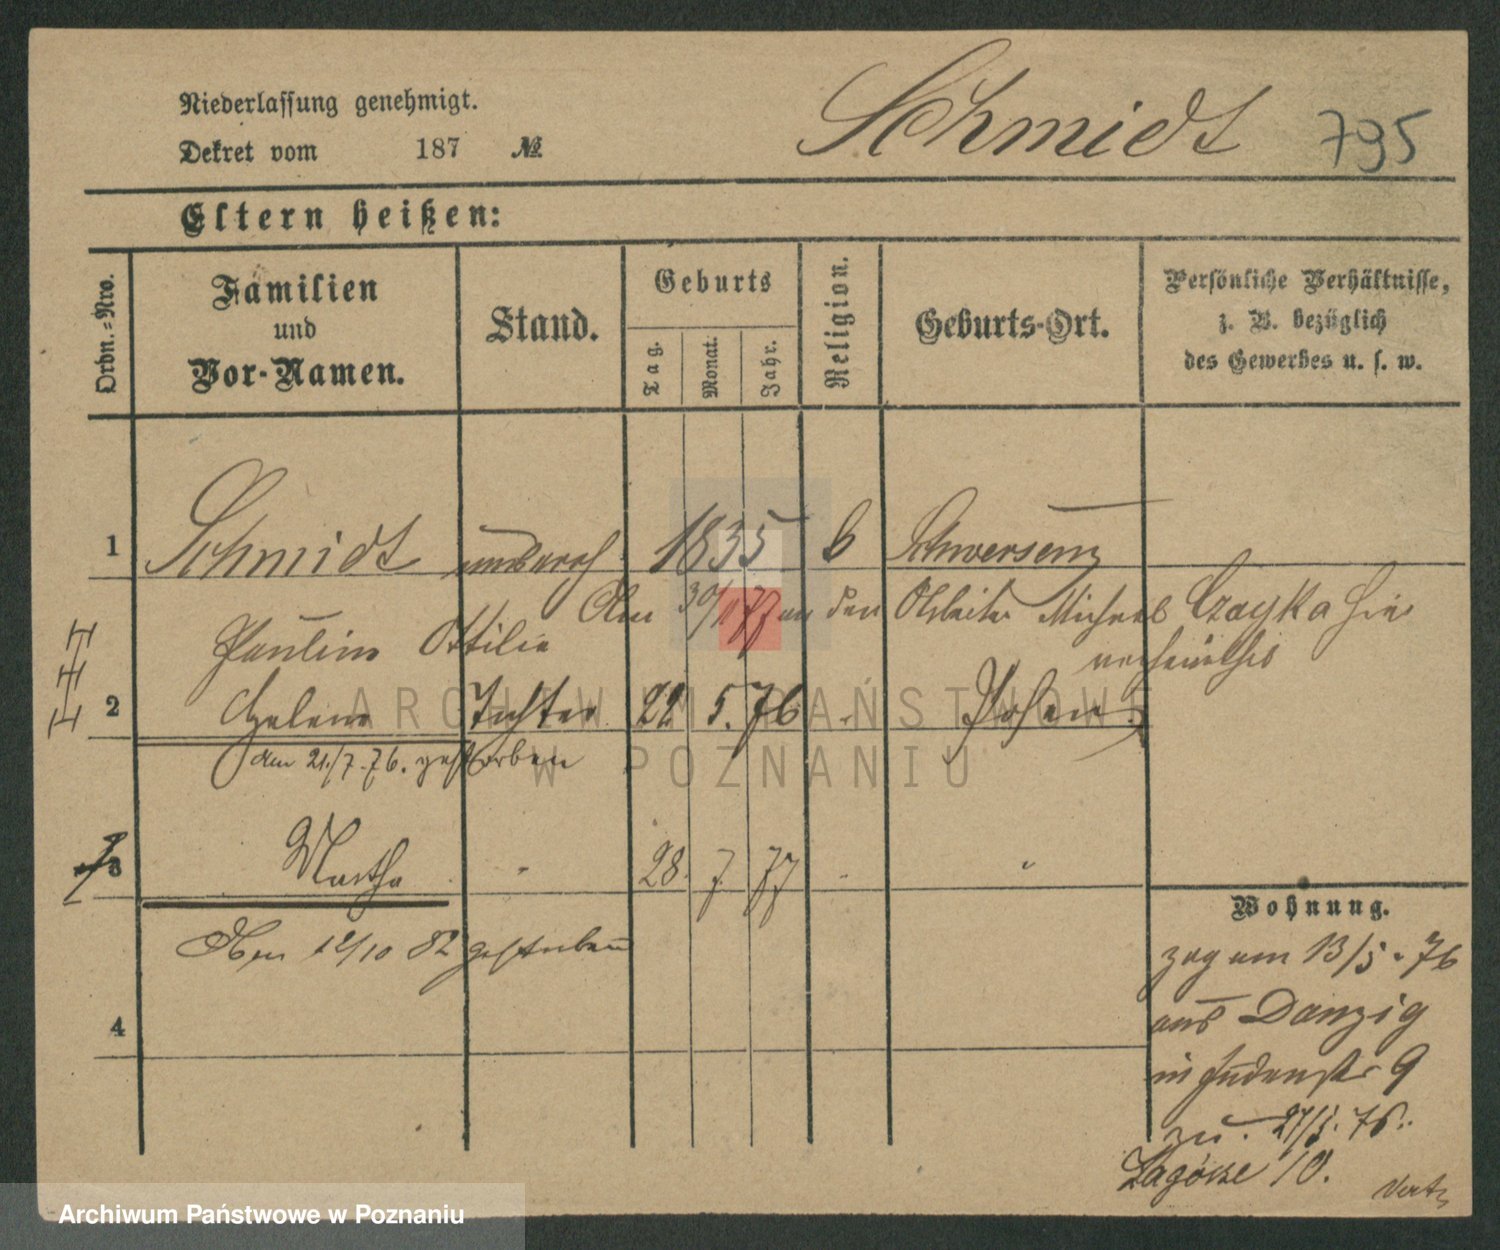 Niederlassung genehmigt.
Schmidt 795
Dekret vom 187 №
Eltern heißen:
Ordn.-Nro.
Familien
und
Vor-Namen.
Stand.
Geburts
Tag.
Monat.
Jahr.
Religion.
Geburts-Ort.
Persönliche Verhältnisse,
z. B. bezüglich
des Gewerbes u. s. w.
1 Schmidt unverh 1835 Schwersenz
Am 30/11 77 an den Arbeiter Michael Czayka hier
verheirathet
Pauline Ottilie
2 Helene Tochter 22 5. 76 Posen
am 21./7. 76. gestorben
3 Martha " 28. 7. 77 "
Am 12/10 82 gestorben
4
Wohnung.
zog am 13/5. 76
aus Danzig
in Judenstr 9
27/5. 76.
Zagórze 10.
ARCHIWUM PAŃSTWOWE
W POZNANIU
Archiwum Państwowe w Poznaniu